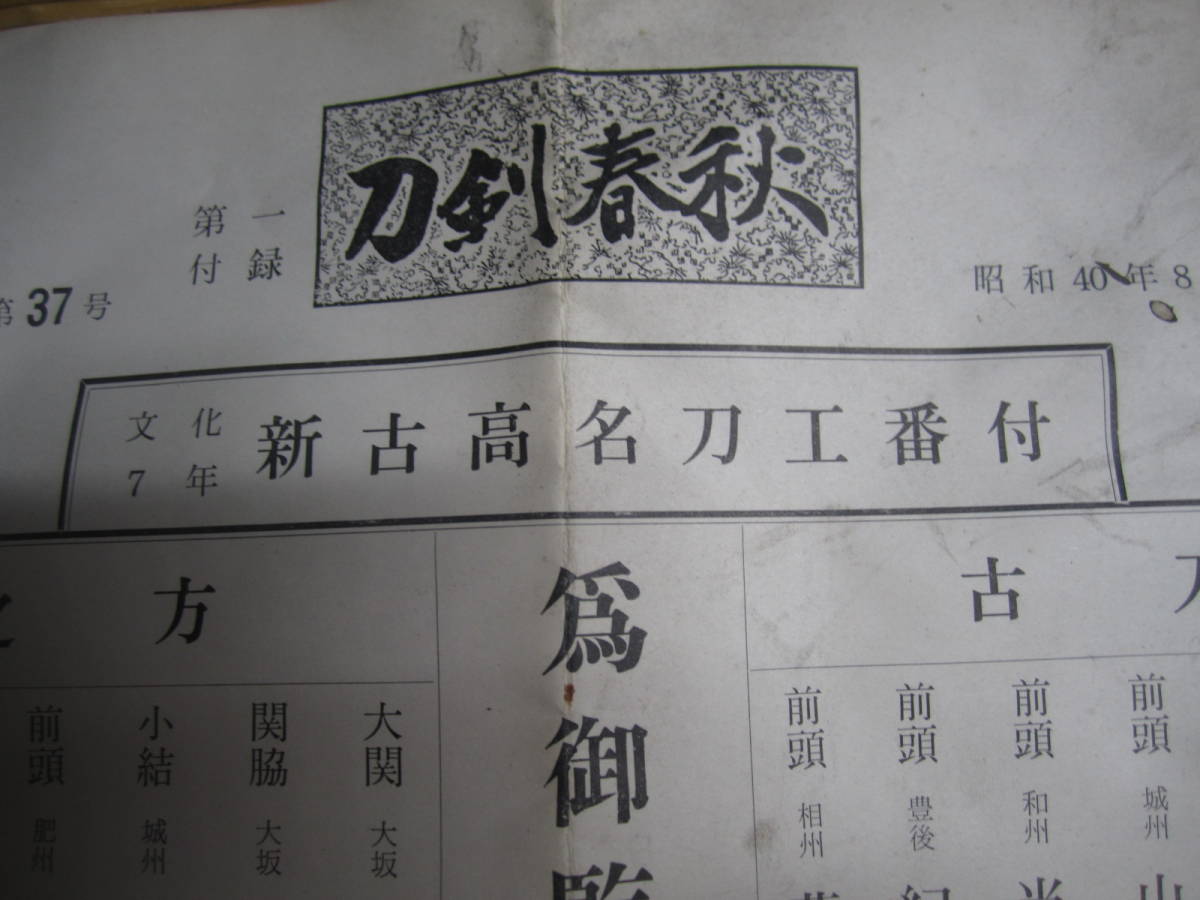 刀剣春秋
第一
付録
第37号
昭和40年8
文化
7年
新古高名刀工番付
古刀
前頭 城州
前頭 和州
前頭 豊後
前頭 相州
為御
方
大関 大坂
関脇 大坂
小結 城州
前頭 肥州